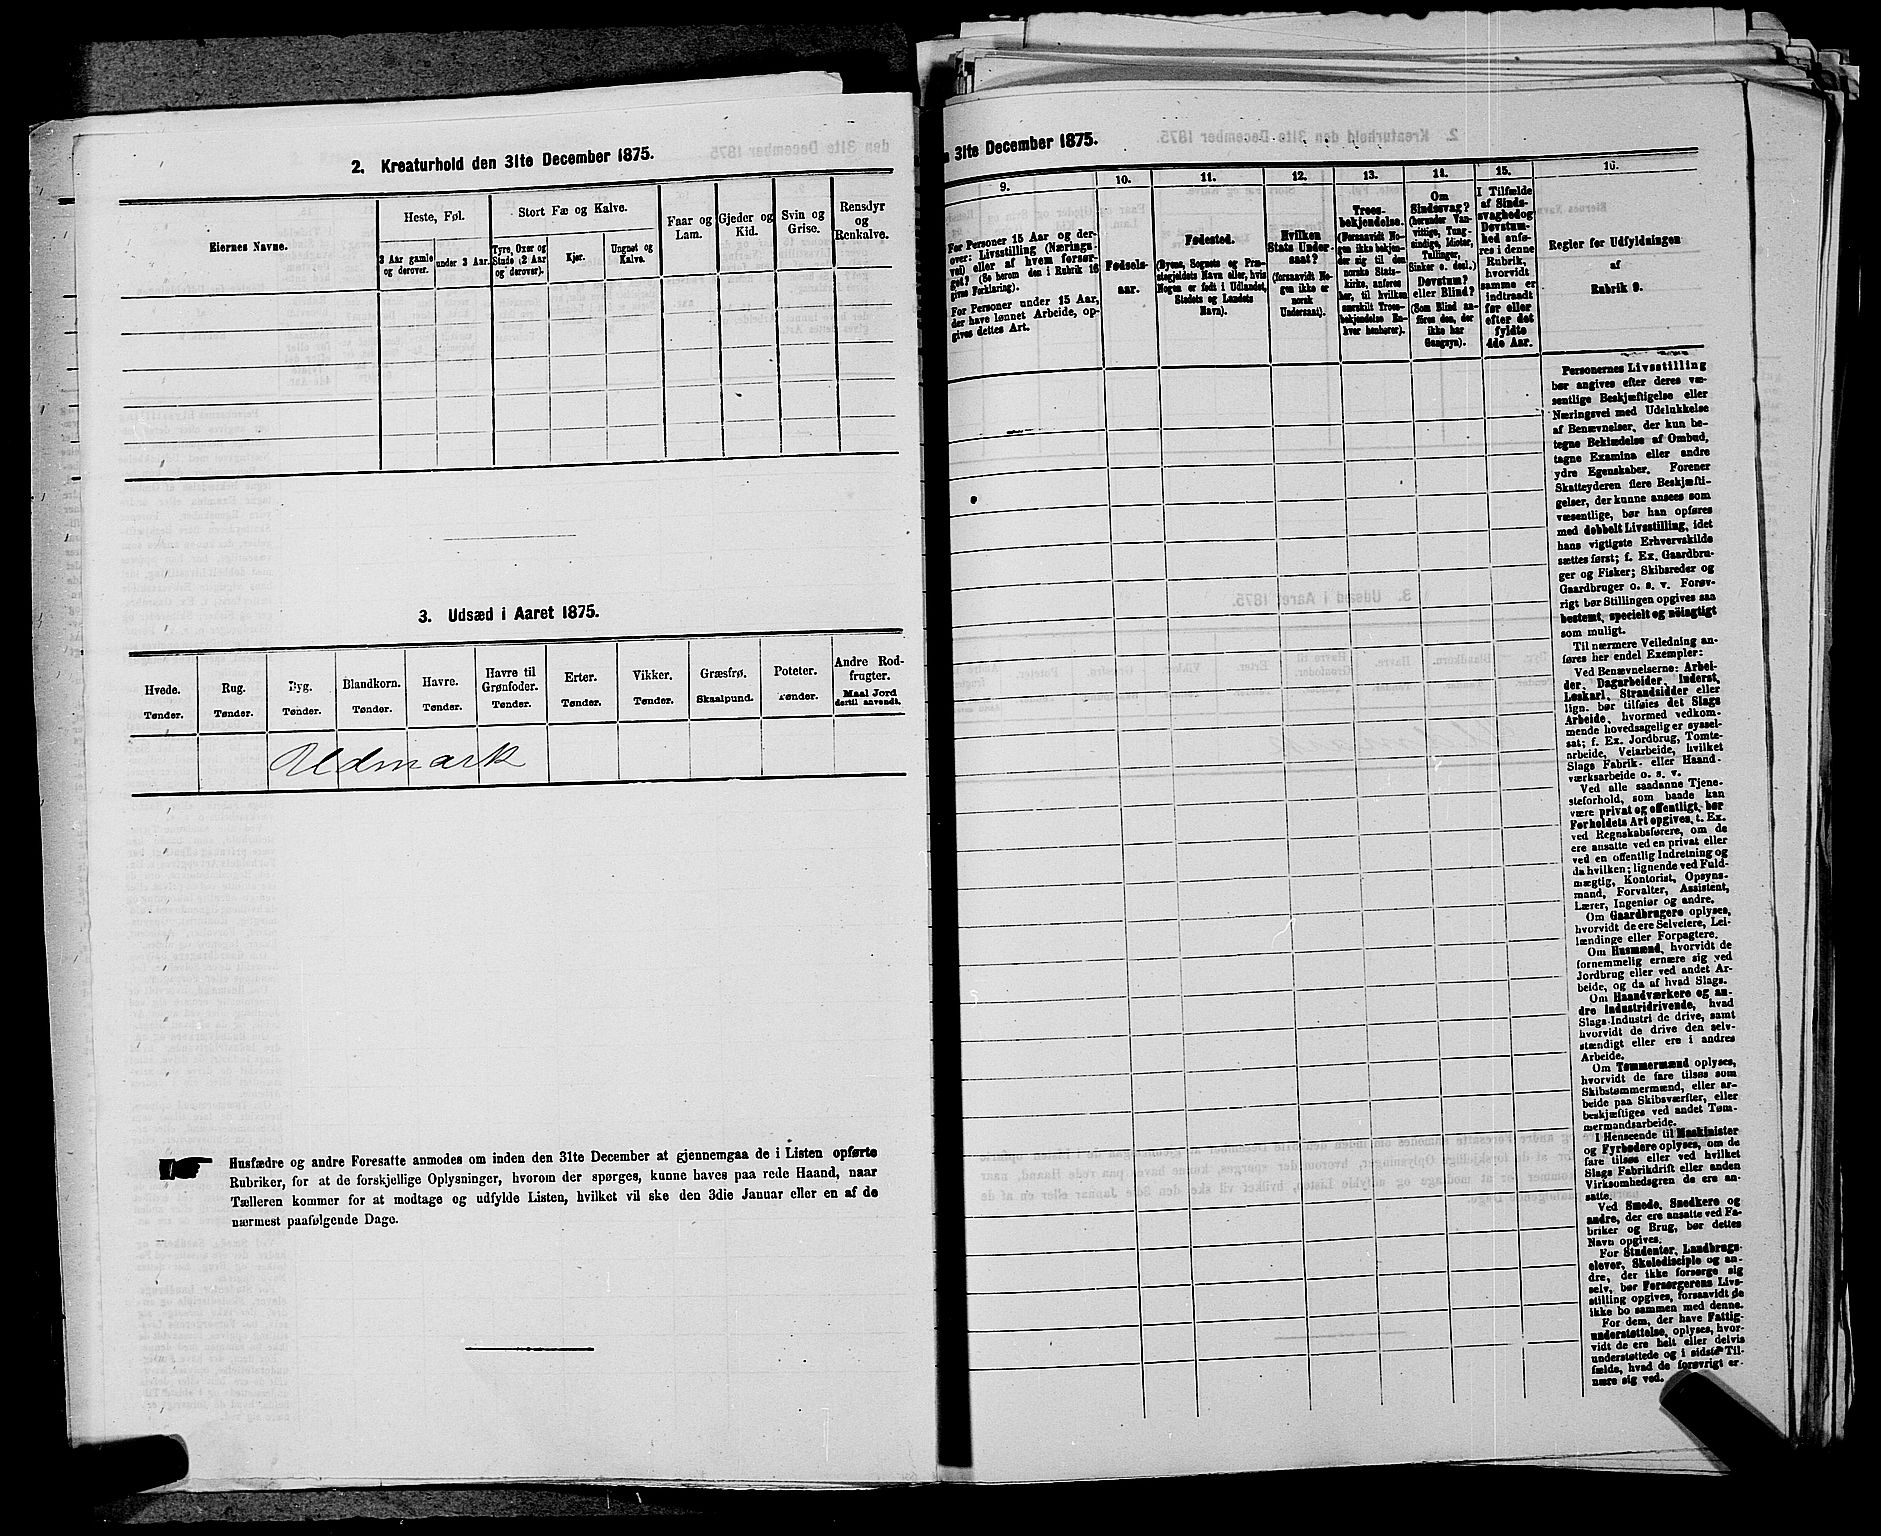 2. Kreaturhold den 31te December 1875.
Eiernes Navne.
Heste, Føl.
3 Aar gamle og derover.
under 3 Aar.
Stort Fæ og Kalve.
Tyre, Oxer og Stude (2 Aar og derover).
Kjør.
Ungnøt og Kalve.
Faar og Lam.
Gjeder og Kid.
Svin og Grise.
Rensdyr og Renkalve.
3. Udsæd i Aaret 1875.
Hvede. Tønder.
Rug. Tønder.
Byg. Tønder.
Blandkorn. Tønder.
Havre. Tønder.
Havre til Grønfoder. Tønder.
Erter. Tønder.
Vikker. Tønder.
Græsfrø. Skaalpund.
Poteter. Tønder.
Andre Rodfrugter. Maal Jord dertil anvendt.
Udmark
Husfædre og andre Foresatte anmodes om inden den 31te December at gjennemgaa de i Listen opførte
Rubriker, for at de forskjellige Oplysninger, hvorom der spørges, kunne haves paa rede Haand, naar
Tælleren kommer for at modtage og udfylde Listen, hvilket vil ske den 3die Januar eller en af de
nærmest paafølgende Dage.
31te December 1875.
9.
For Personer 15 Aar og derover: Livsstilling (Næringsvei) eller af hvem forsørget? (Se herom den i Rubrik 16 givne Forklaring).
For Personer under 15 Aar, der have lønnet Arbeide, opgives dettes Art.
10.
Fødselsaar.
11.
Fødested.
(Byens, Sognets og Præstegjeldets Navn eller, hvis Nogen er født i Udlandet, Stedets og Landets Navn).
12.
Hvilken Stats Undersaat?
(forsaavidt Nogen ikke er norsk Undersaat).
13.
Troesbekjendelse.
(Forsaavidt Nogen ikke bekjender sig til den norske Statskirke, anføres her, til hvilken særskilt Troesbekjendelse Enhver henhører).
14.
Om Sindssvag? (herunder Vanvittige, Tungsindige, Idioter, Tullinger, Sinker o. desl.) Døvstum? eller Blind? (Som Blind anføres den, der ikke har Gangsyn).
15.
I Tilfælde af Sindssvaghed og Døvstumhed anføres i denne Rubrik, hvorvidt samme er indtraadt før eller efter det fyldte 4de Aar.
16.
Regler for Udfyldningen
af
Rubrik 9.
Personernes Livsstilling
bør angives efter deres væ-
sentlige Beskjæftigelse eller
Næringsvei med Udelukkelse
af Benævnelser, der kun be-
tegne Beklædelse af Ombud,
tagne Examina eller andre
ydre Egenskaber. Forener
Skatteyderen flere Beskjæfti-
gelser, der kunne ansees som
væsentlige, bør han opføres
med dobbelt Livsstilling, idet
hans vigtigste Erhvervskilde
sættes først; f. Ex. Gaardbru-
ger og Fisker; Skibsreder og
Gaardbruger o. s. v. Forøv-
rigt bør Stillingen opgives saa
bestemt, specielt og nøiagtigt
som muligt.
Til nærmere Veiledning an-
føres her endel Exempler:
Ved Benævnelserne: Arbei-
der, Dagarbeider, Inderst,
Løskarl, Strandsidder eller
lign. bør tilføies det Slags
Arbeide, hvormed vedkom-
mende hovedsagelig er syssel-
sat; f. Ex. Jordbrug, Tomte-
arbeide, Veiarbeide, hvilket
Slags Fabrik- eller Haand-
værksarbeide o. s. v.
Ved alle saadanne Tjene-
steforhold, som baade kan
være privat og offentligt, bør
Forholdets Art opgives, t. Ex.
ved Regnskabsførere, om de
ere ansatte ved en privat eller
ved en offentlig Indretning og
da hvilken; lignende ved Fuld-
mægtig, Kontorist, Opsyns-
mand, Forvalter, Assistent,
Lærer, Ingeniør og andre.
Om Gaardbrugere oplyses,
hvorvidt de ere Selveiere, Lei-
lændinge eller Forpagtere.
Om Husmænd, hvorvidt de
fornemmelig ernære sig ved
Jordbrug eller ved andet Ar-
beide, og da af hvad Slags.
Om Haandværkere og an-
dre Industridrivende, hvad
Slags Industri de drive, samt
hvorvidt de drive den selv-
stændigt eller ere i andres
Arbeide.
Om Tømmermænd oplyses,
hvorvidt de fare tilsøs som
Skibstømmermænd, eller ar-
beide paa Skibsværfter, eller
beskjæftiges ved andet Tøm-
mermandsarbeide.
I Henseende til Maskinister
og Fyrbødere oplyses, om de
fare tilsøs eller ved hvilket
Slags Fabrikdrift eller anden
Virksomhedsgren de ere an-
satte.
Ved Smede, Snedkere og
andre, der ere ansatte ved Fa-
briker og Brug, bør dettes
Navn opgives.
For Studenter, Landbrugs-
elever, Skoledisciple og an-
dre, der ikke forsørge sig
selv, bør Forsørgerens Livs-
stilling opgives, forsaavidt de
ikke bo sammen med denne.
For dem, der have Fattig-
understøttelse, oplyses, hvor-
vidt de ere helt eller delvis
understøttede og i sidste Til-
fælde, hvad de forøvrigt er-
nære sig ved.